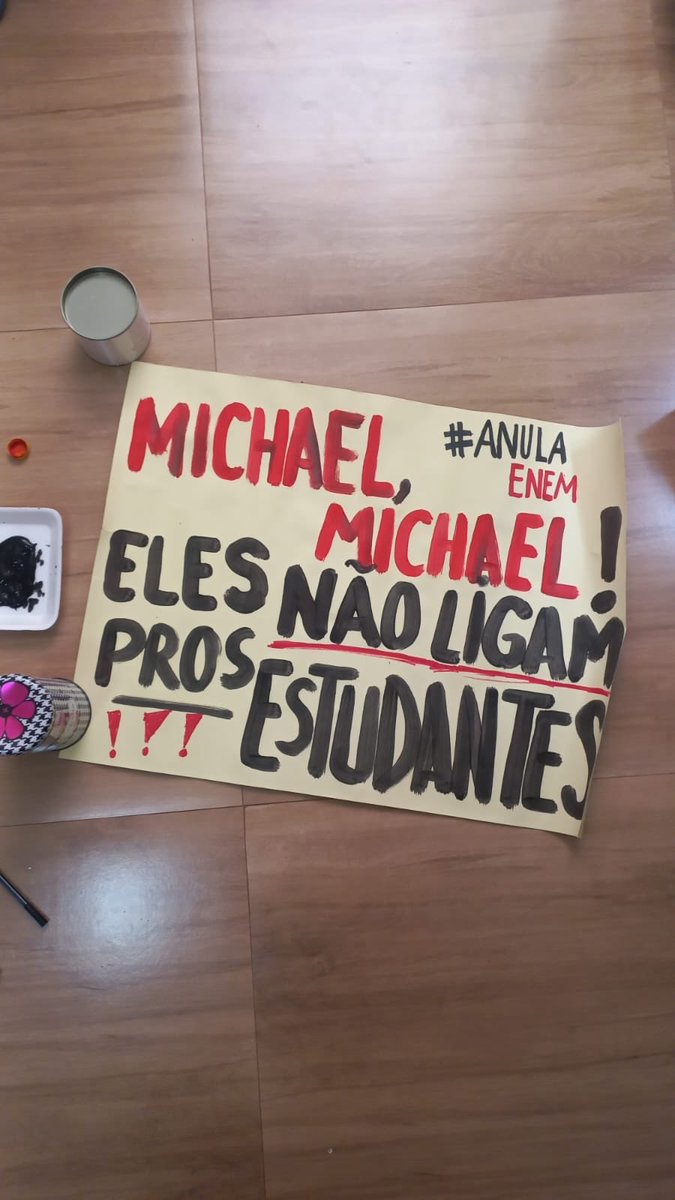 MICHAEL,
#ANULA
ENEM
MICHAEL!
ELES NÃO LIGAM
PROS ESTUDANTES
!!!